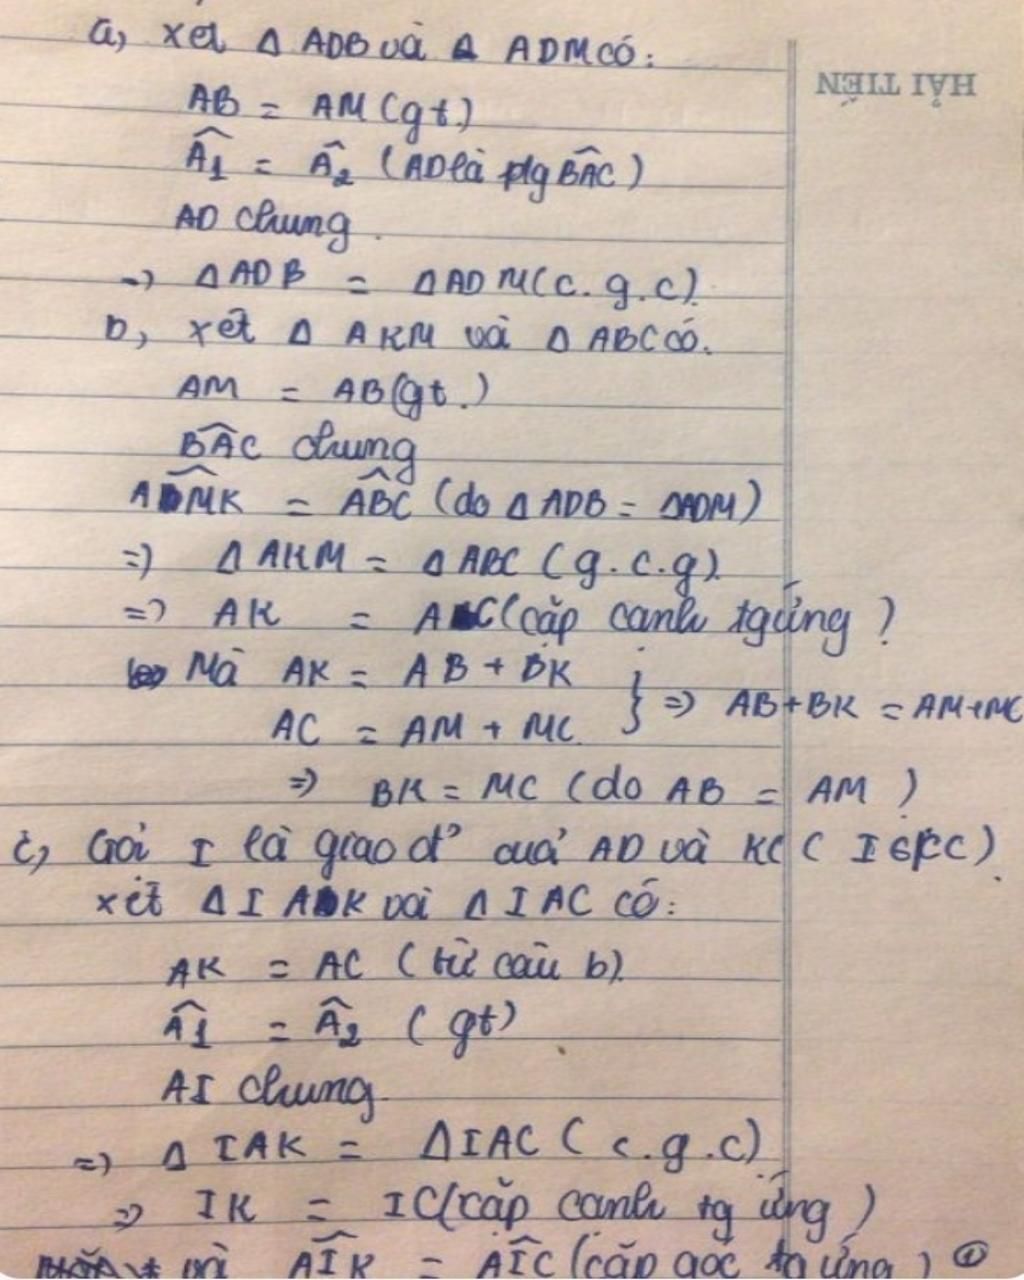 a, xét Δ ADB và Δ ADM có:
HẢI TIẾN
AB = AM (gt)
Â1 = Â2 (AD là plg BÂC)
AD chung.
=> Δ ADB = Δ ADM (c.g.c)
b, xét Δ AKM và Δ ABC có.
AM = AB (gt.)
BÂC chung
AMK = ABC (do Δ ADB = ΔADM)
=> Δ AKM = Δ ABC (g.c.g)
=> AK = AC (cặp cạnh tgứng)
Mà AK = AB + BK
AC = AM + MC } => AB+BK = AM+MC
=> BK = MC (do AB = AM)
c, Gọi I là giao đ' của AD và KC ( I ∈ KC).
xét Δ I AK và Δ IAC có:
AK = AC (từ câu b)
Â1 = Â2 (gt)
AI chung
=> Δ IAK = ΔIAC ( c.g.c)
=> IK = IC (cặp cạnh tg ứng )
và AÎK = AÎC (cặp góc tg ứng ) ①